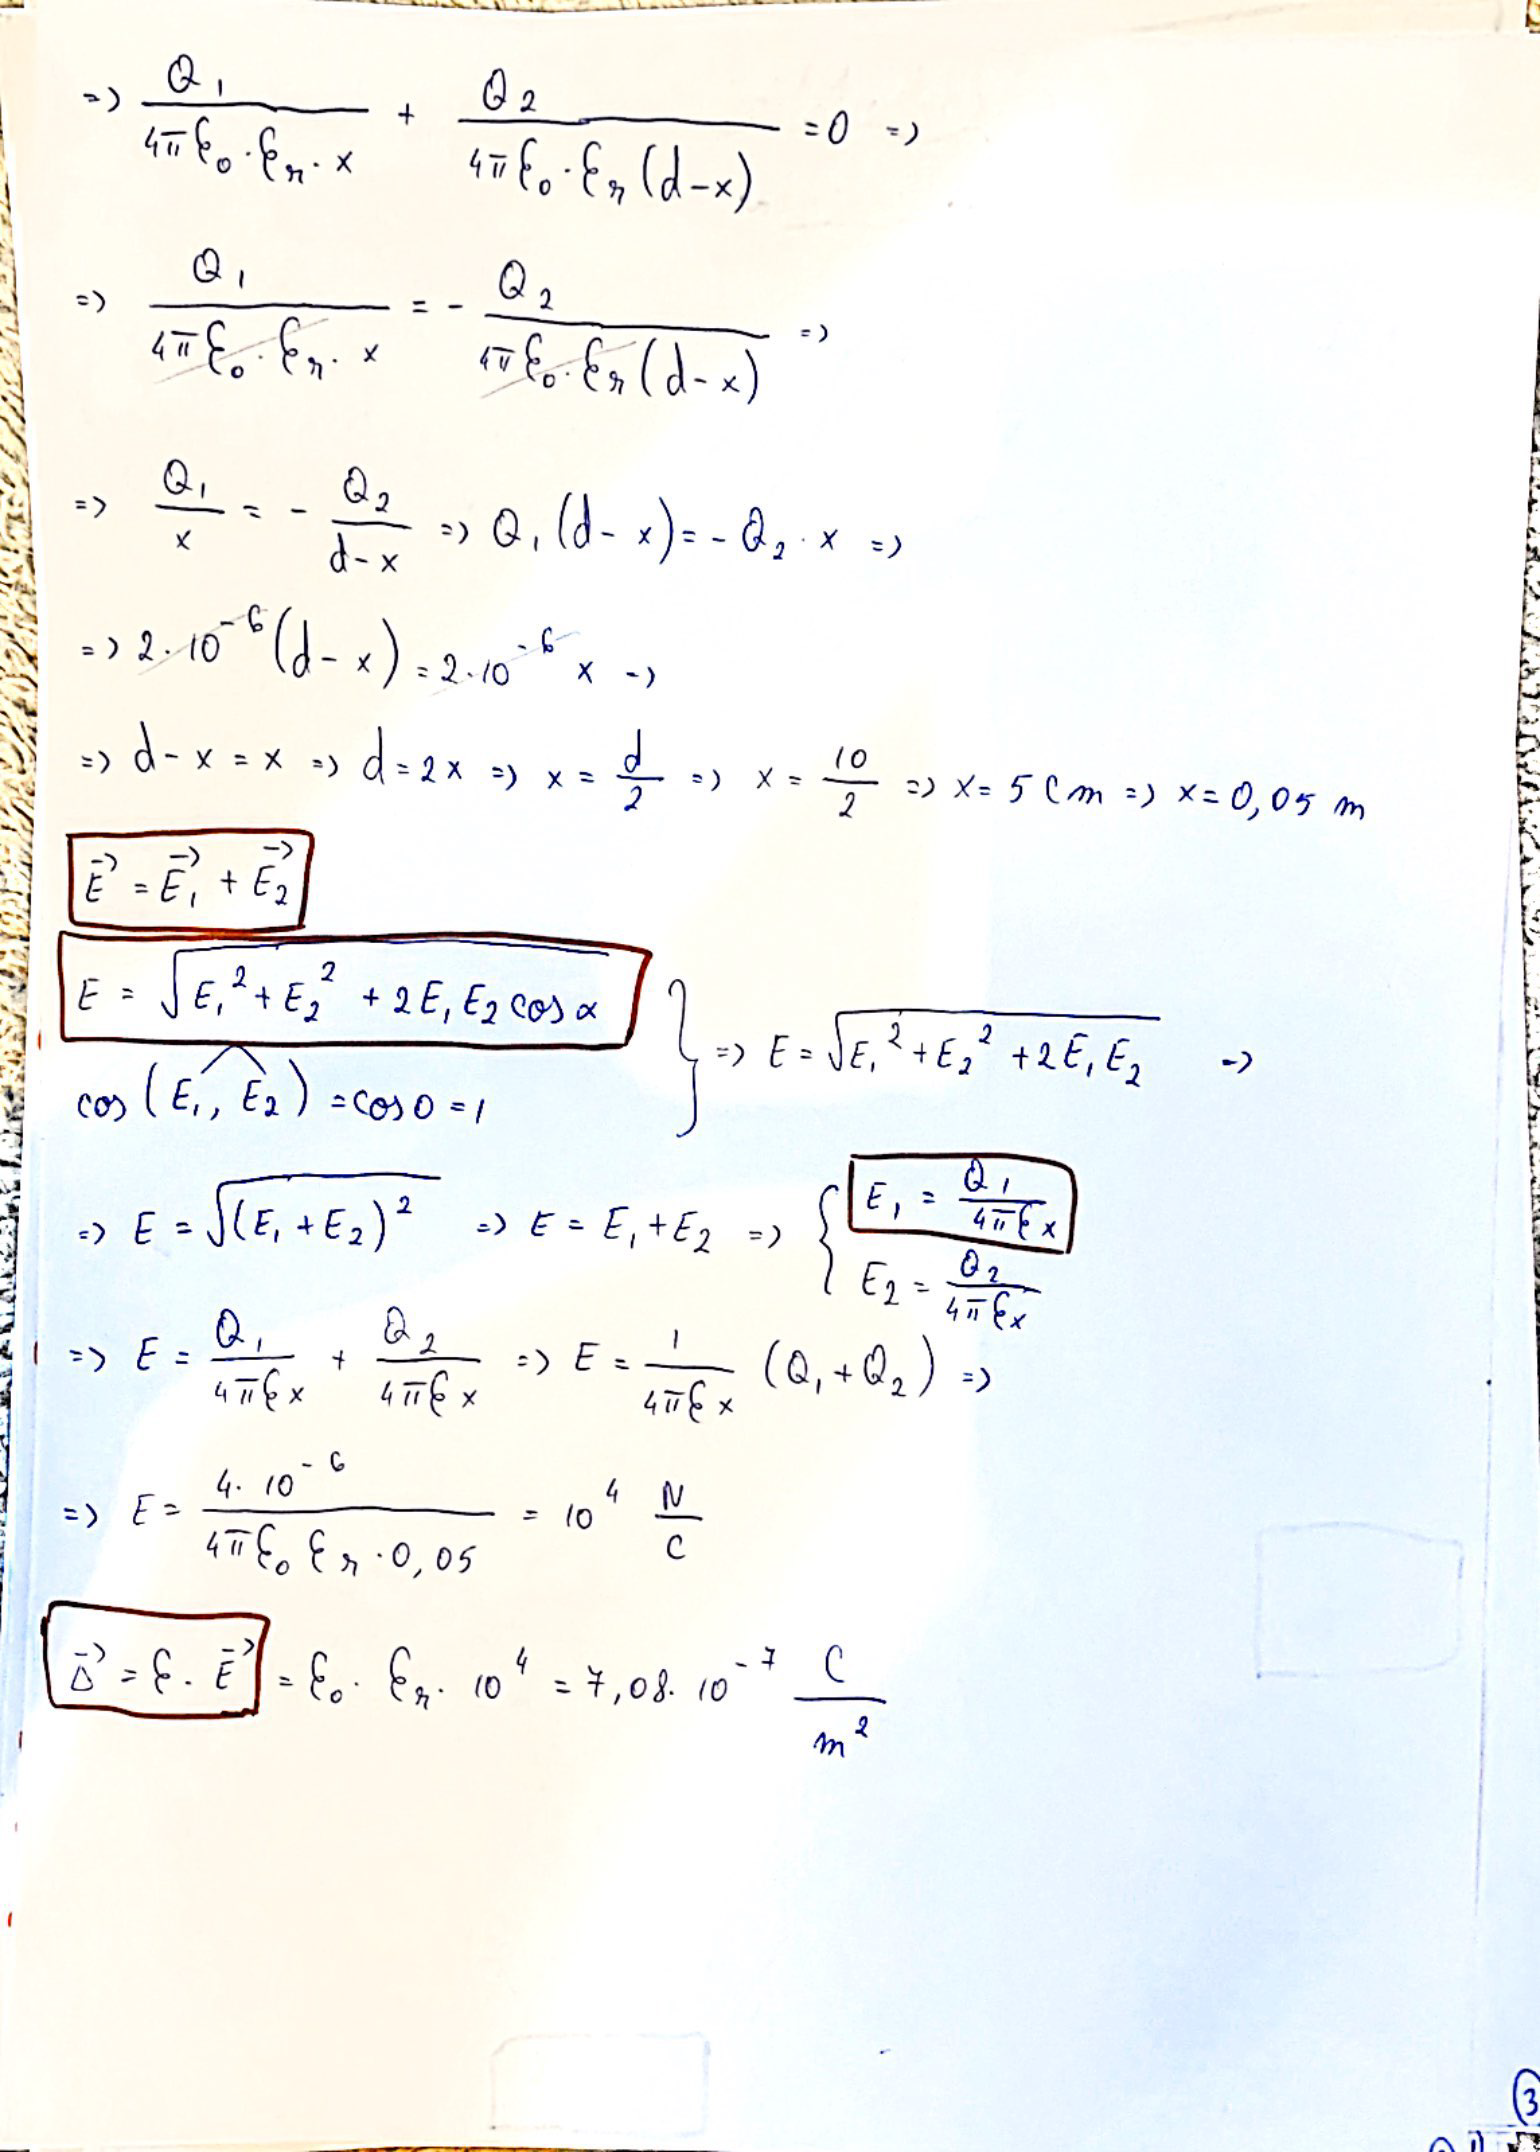 => Q₁/(4π ε₀·εᵣ·x) + Q₂/(4π ε₀·εᵣ(d-x)) =0 =>
=> Q₁/(4π ε₀·εᵣ·x) = - Q₂/(4π ε₀·εᵣ(d-x)) =>
=> Q₁/x = - Q₂/(d-x) => Q₁(d-x)=-Q₂·x =>
=> 2·10⁻⁶(d-x)=2·10⁻⁶ x =>
=> d-x=x => d=2x => x=d/2 => x=10/2 => x=5 cm => x=0,05 m
E⃗ = E⃗₁ + E⃗₂
E = √(E₁²+E₂² +2E₁E₂ cos α)
cos (E₁, E₂) = cos 0 = 1 } => E = √(E₁²+E₂² +2E₁E₂) =>
=> E = √((E₁+E₂)²) => E = E₁+E₂ => { E₁ = Q₁/(4πεx)
E₂ = Q₂/(4πεx)
=> E = Q₁/(4πεx) + Q₂/(4πεx) => E = 1/(4πεx) (Q₁+Q₂) =>
=> E = 4·10⁻⁶/(4πε₀εᵣ·0,05) = 10⁴ N/C
D⃗ = ε·E⃗ = ε₀·εᵣ·10⁴ = 7,08·10⁻⁷ C/m²
3